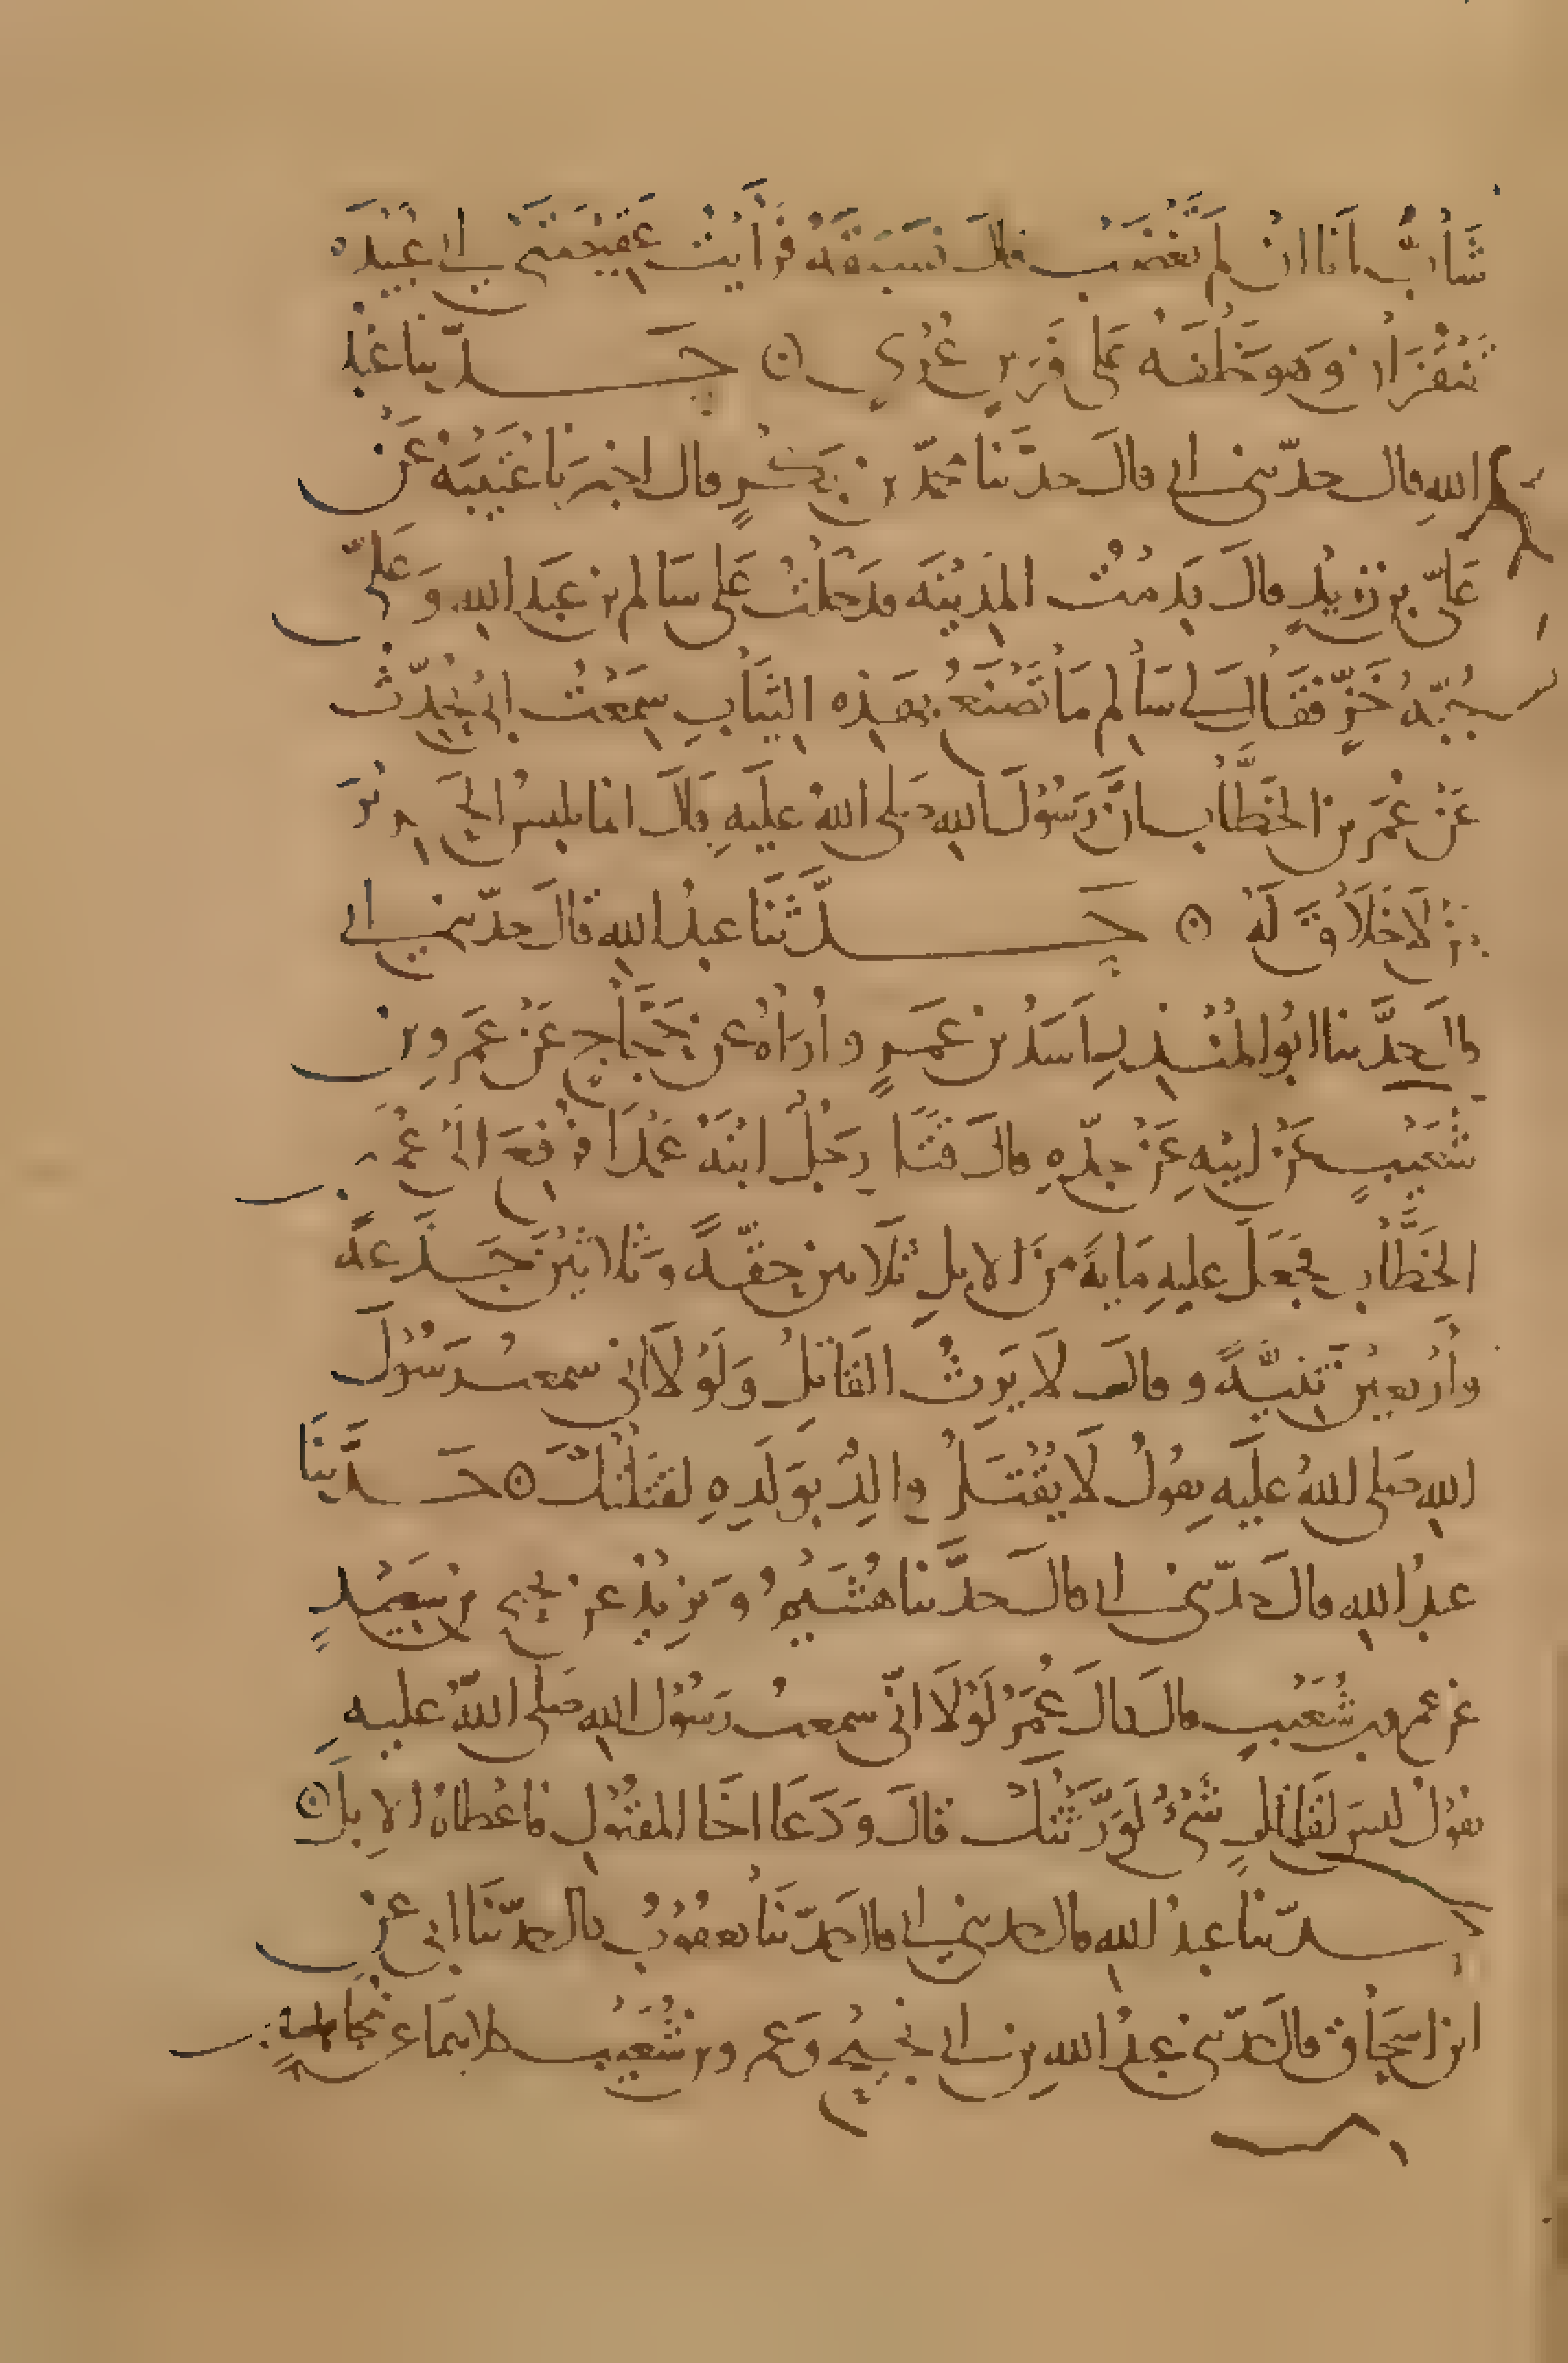 شَابٌّ أَنَا إِنْ لَمْ تَغْضَبْ قالَ فَسَبَقَهُ فَرَأَيْتُ عَقِيصَتَيْ أَبِي عُبَيْدَة
تَنْقُزَانِ وَهوَ خَلْفَه عَلَى فَرَسٍ عُرْيٍ ۞ حَــدّثنا عَبْدُ
اللهِ قال حدّثني أبي قالَ حدَّثنا محمّد بن بَكْرٍ قال اخبرَنا عُيَيْنَةُ عَن
عَليّ بن زَيْدٍ قالَ قَدِمْتُ المَدِيْنَه فدَخَلْتُ عَلى سَالم بن عَبدِ اللهِ وَعَليَّ
جُبَّهُ خَزٍّ فَقَالَ لِي سَالِم مَا تَصْنَعُ بِهَذِه الثِّيَابِ سَمِعْتُ ابي يُحَدِّث
عَنْ عُمَرَ بن الخَطَّابِ انَّ رَسُوْلَ اللهِ صَلى اللهُ علَيهِ قالَ انما يلبسُ الحَرِيْرَ
مَنْ لَا خَلَاقَ لَهُ ۞ حَــدَّثَنَا عبدُ اللهِ قالَ حدّثني ابي
قالَ حدَّثنا ابُو المُنْذِرِ اَسَدُ بن عَمْرٍو اُرَاهُ عن حَجَّاجٍ عَنْ عَمْرِو بن
شُعَيْبٍ عَنْ ابِيْهِ عَنْ جدّهِ قالَ قَتَلَ رَجُلٌ ابْنَهُ عَمْدًا فرُفِعَ الَى عُمَرَ بن
الخَطَّابِ فَجَعَلَ عليهِ مَايةً مِنَ الابلِ ثَلَاثين حِقَّةً وَثَلاثِيْنَ جَــذَعةً
وأَرْبعيْنَ ثَنِيَّةً وقالَ لَا يَرِثُ القَاتِلُ وَلَوْ لَا اني سمعتُ رَسُوْلَ
اللهِ صَلى اللهُ علَيهِ يقولُ لَا يُقْتَــلُ والِدٌ بِوَلَدِهِ لقَتَلْتُكَ ۞ حَــدَّثنَا
عبدُ اللهِ قالَ حدّثني ابي قالَ حدَّثنا هُشَيْمٌ وَيزِيْدُ عن يحيى بن سَعِيْدٍ
عن عمرو بن شُعَيْبٍ قالَ قالَ عُمَرُ لَوْلَا انّي سمعتُ رَسُوْلَ اللهِ صَلى اللهُ عليهِ
يقوُلُ ليسَ لقَاتلٍ شَيْءٌ لَوَرَّثْتُكَ قالَ وَدَعَا اخَا المقتُوْلِ فاعْطاهُ الإِبلَ ۞
حــدّثنا عبدُ اللهِ قال حدثني ابي قالَ حَدّثنَا يعقُوبُ قال حدّثنَا ابي عن
ابن اسحَاقَ قالَ حدّثني عبدُ اللهِ بن ابي نَجِيْحٍ وَعمرو بن شُعَيْبٍ كلاهمَا عن مُجَاهِدِ بن